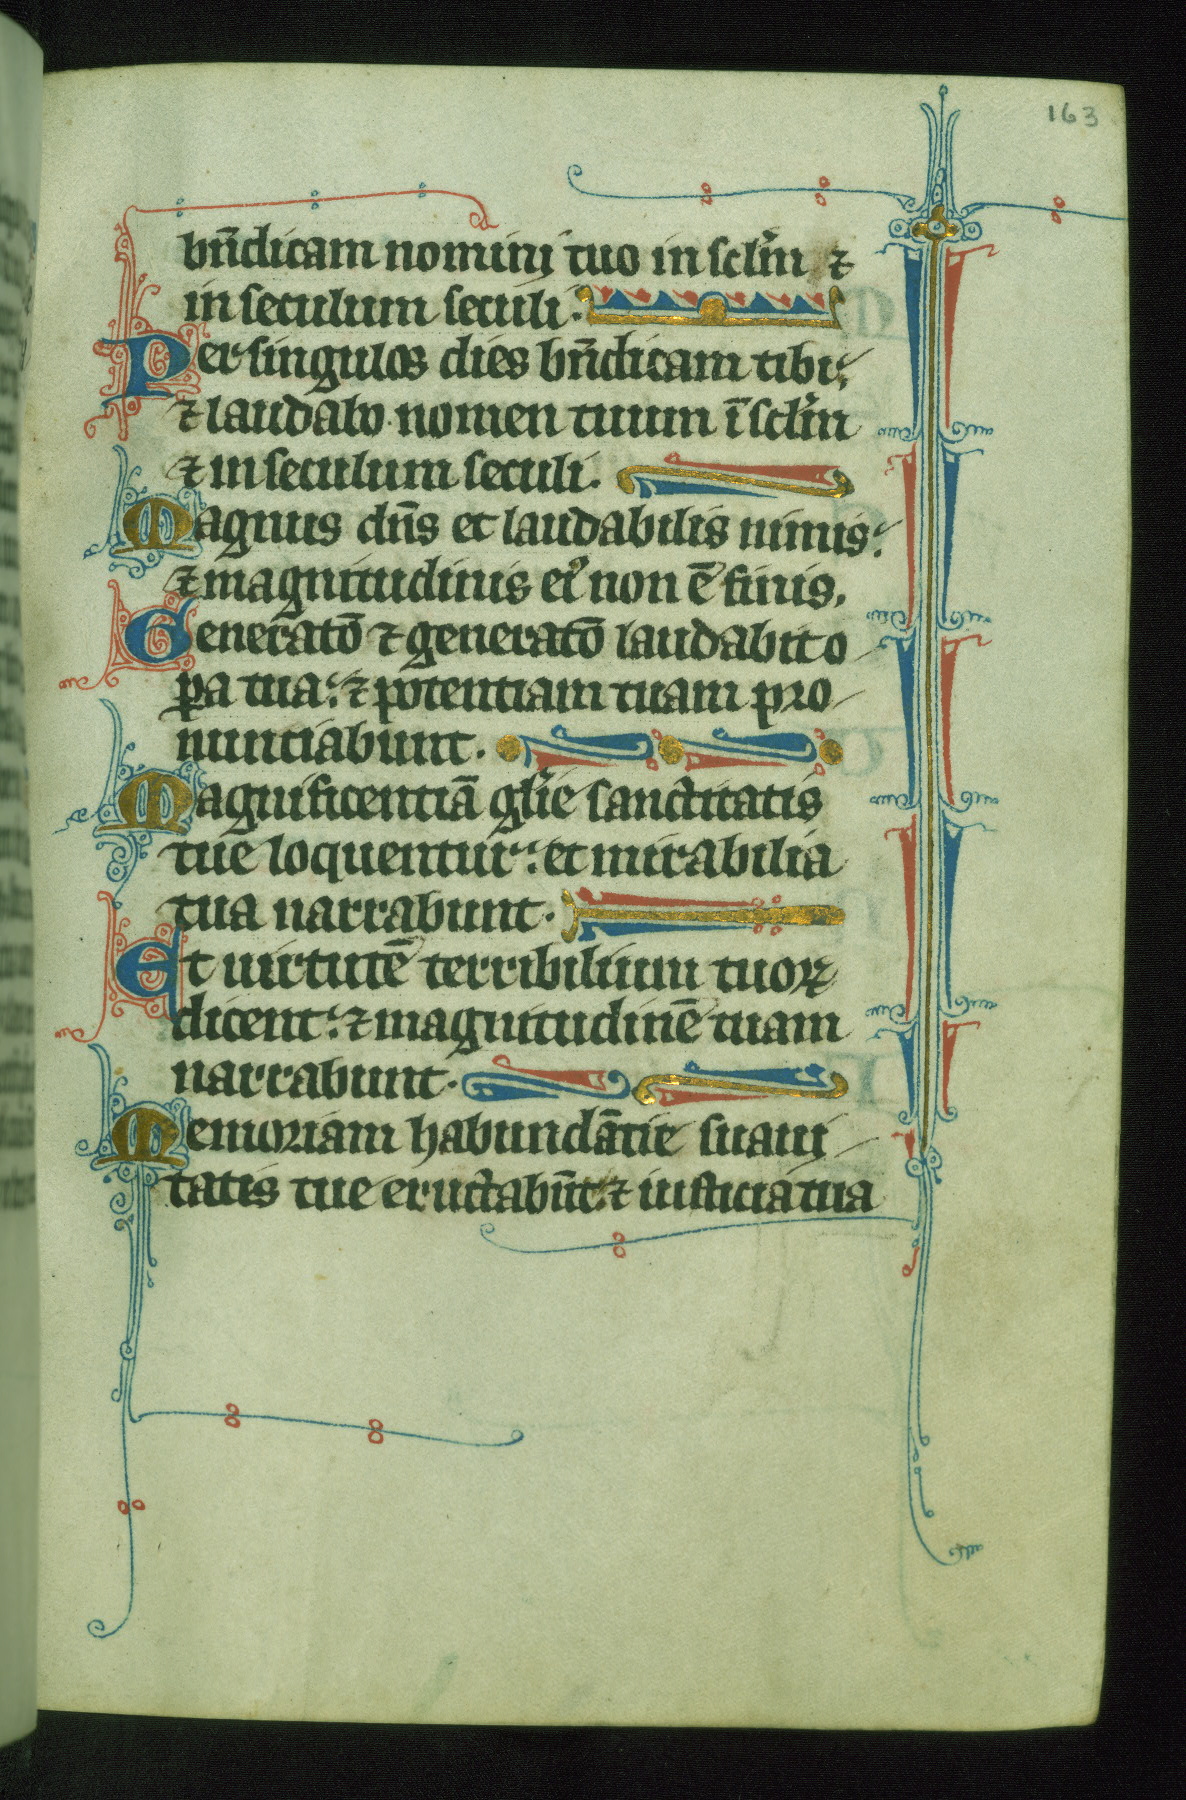 163
bn̄dicam nomini tuo in sclm̄ ⁊
in seculum seculi.
Per singulos dies bn̄dicam tibi:
⁊ laudabo nomen tuum ī sclm̄
⁊ in seculum seculi.
Magnus dn̄s et laudabilis nimis:
⁊ magnitudinis eiꝰ non ē finis.
Generatō ⁊ generatō laudabit o
ꝑa tua: ⁊ potentiam tuam pro
nunciabunt.
Magnificentiā głie sanctitatis
tue loquentur: et mirabilia
tua narrabunt.
Et uirtutē terribilium tuoꝝ
dicent: ⁊ magnitudinē tuam
narrabunt.
Memoriam habundātie suaui
tatis tue eructabūt: ⁊ iusticia tua